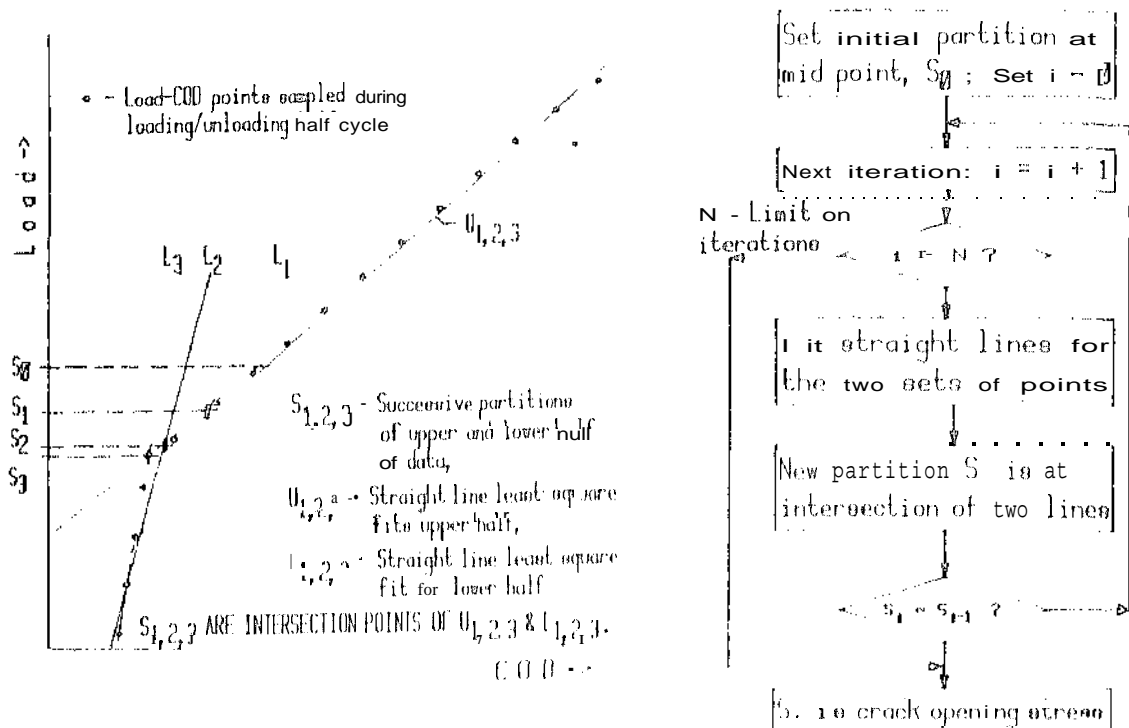 - Load-COD points sampled during
loading/unloading half cycle
Load ->
L3 L2 L1
U1,2,3
SØ
S1
S2
S3
S1,2,3 - Successive partitions
of upper and lower half
of data,
U1,2, - Straight line least square
fits upper half,
L1,2, - Straight line least square
fit for lower half
S1,2,3 ARE INTERSECTION POINTS OF U1,2,3 & L1,2,3.
COD
Set initial partition at
mid point, SØ ; Set i - Ø
Next iteration: i = i + 1
N - Limit on
iterations
N ?
it straight lines for
the two sets of points
New partition S is at
intersection of two lines
Si = Si-1 ?
S. is crack opening stress